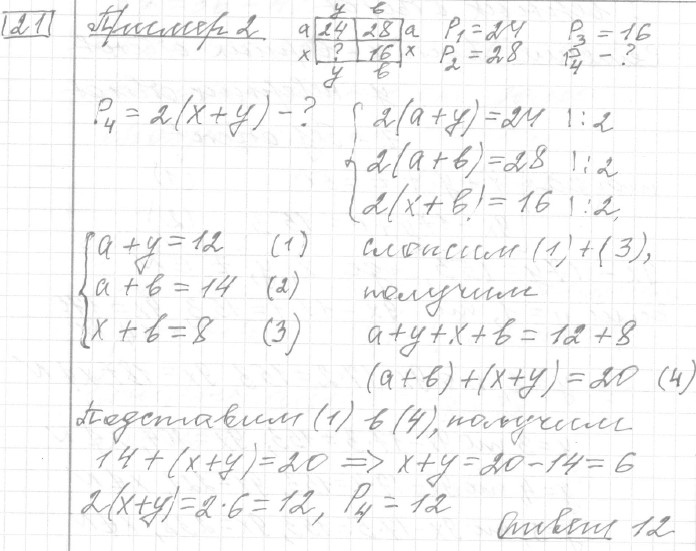 21 Пример 2
у в
а 24 28 а P₁=24 P₃=16
х ? 16 х P₂=28 P₄-?
у в
P₄=2(x+y)-?
2(a+y)=24 |:2
2(a+в)=28 |:2
2(x+в)=16 |:2
a+y=12 (1)
a+в=14 (2)
x+в=8 (3)
сложим (1)+(3),
получим
a+y+x+в=12+8
(a+в)+(x+y)=20 (4)
Подставим (1) в (4), получим
14+(x+y)=20 => x+y=20-14=6
2(x+y)=2·6=12, P₄=12
Ответ 12